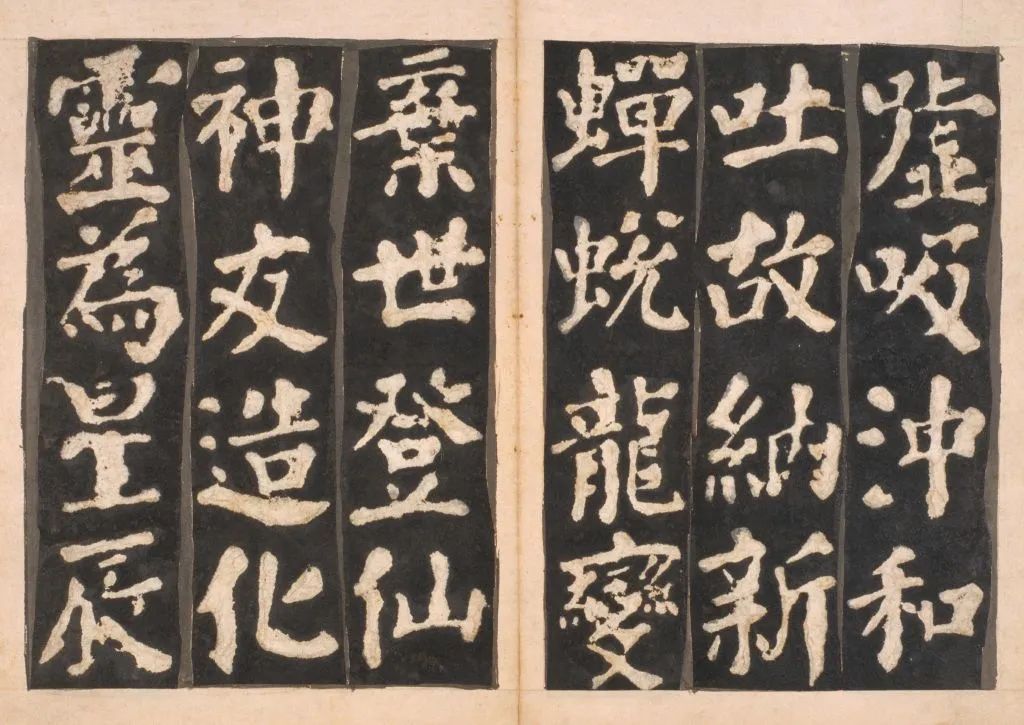 噓吸沖和
吐故納新
蟬蛻龍變
棄世登仙
神友造化
靈為星辰